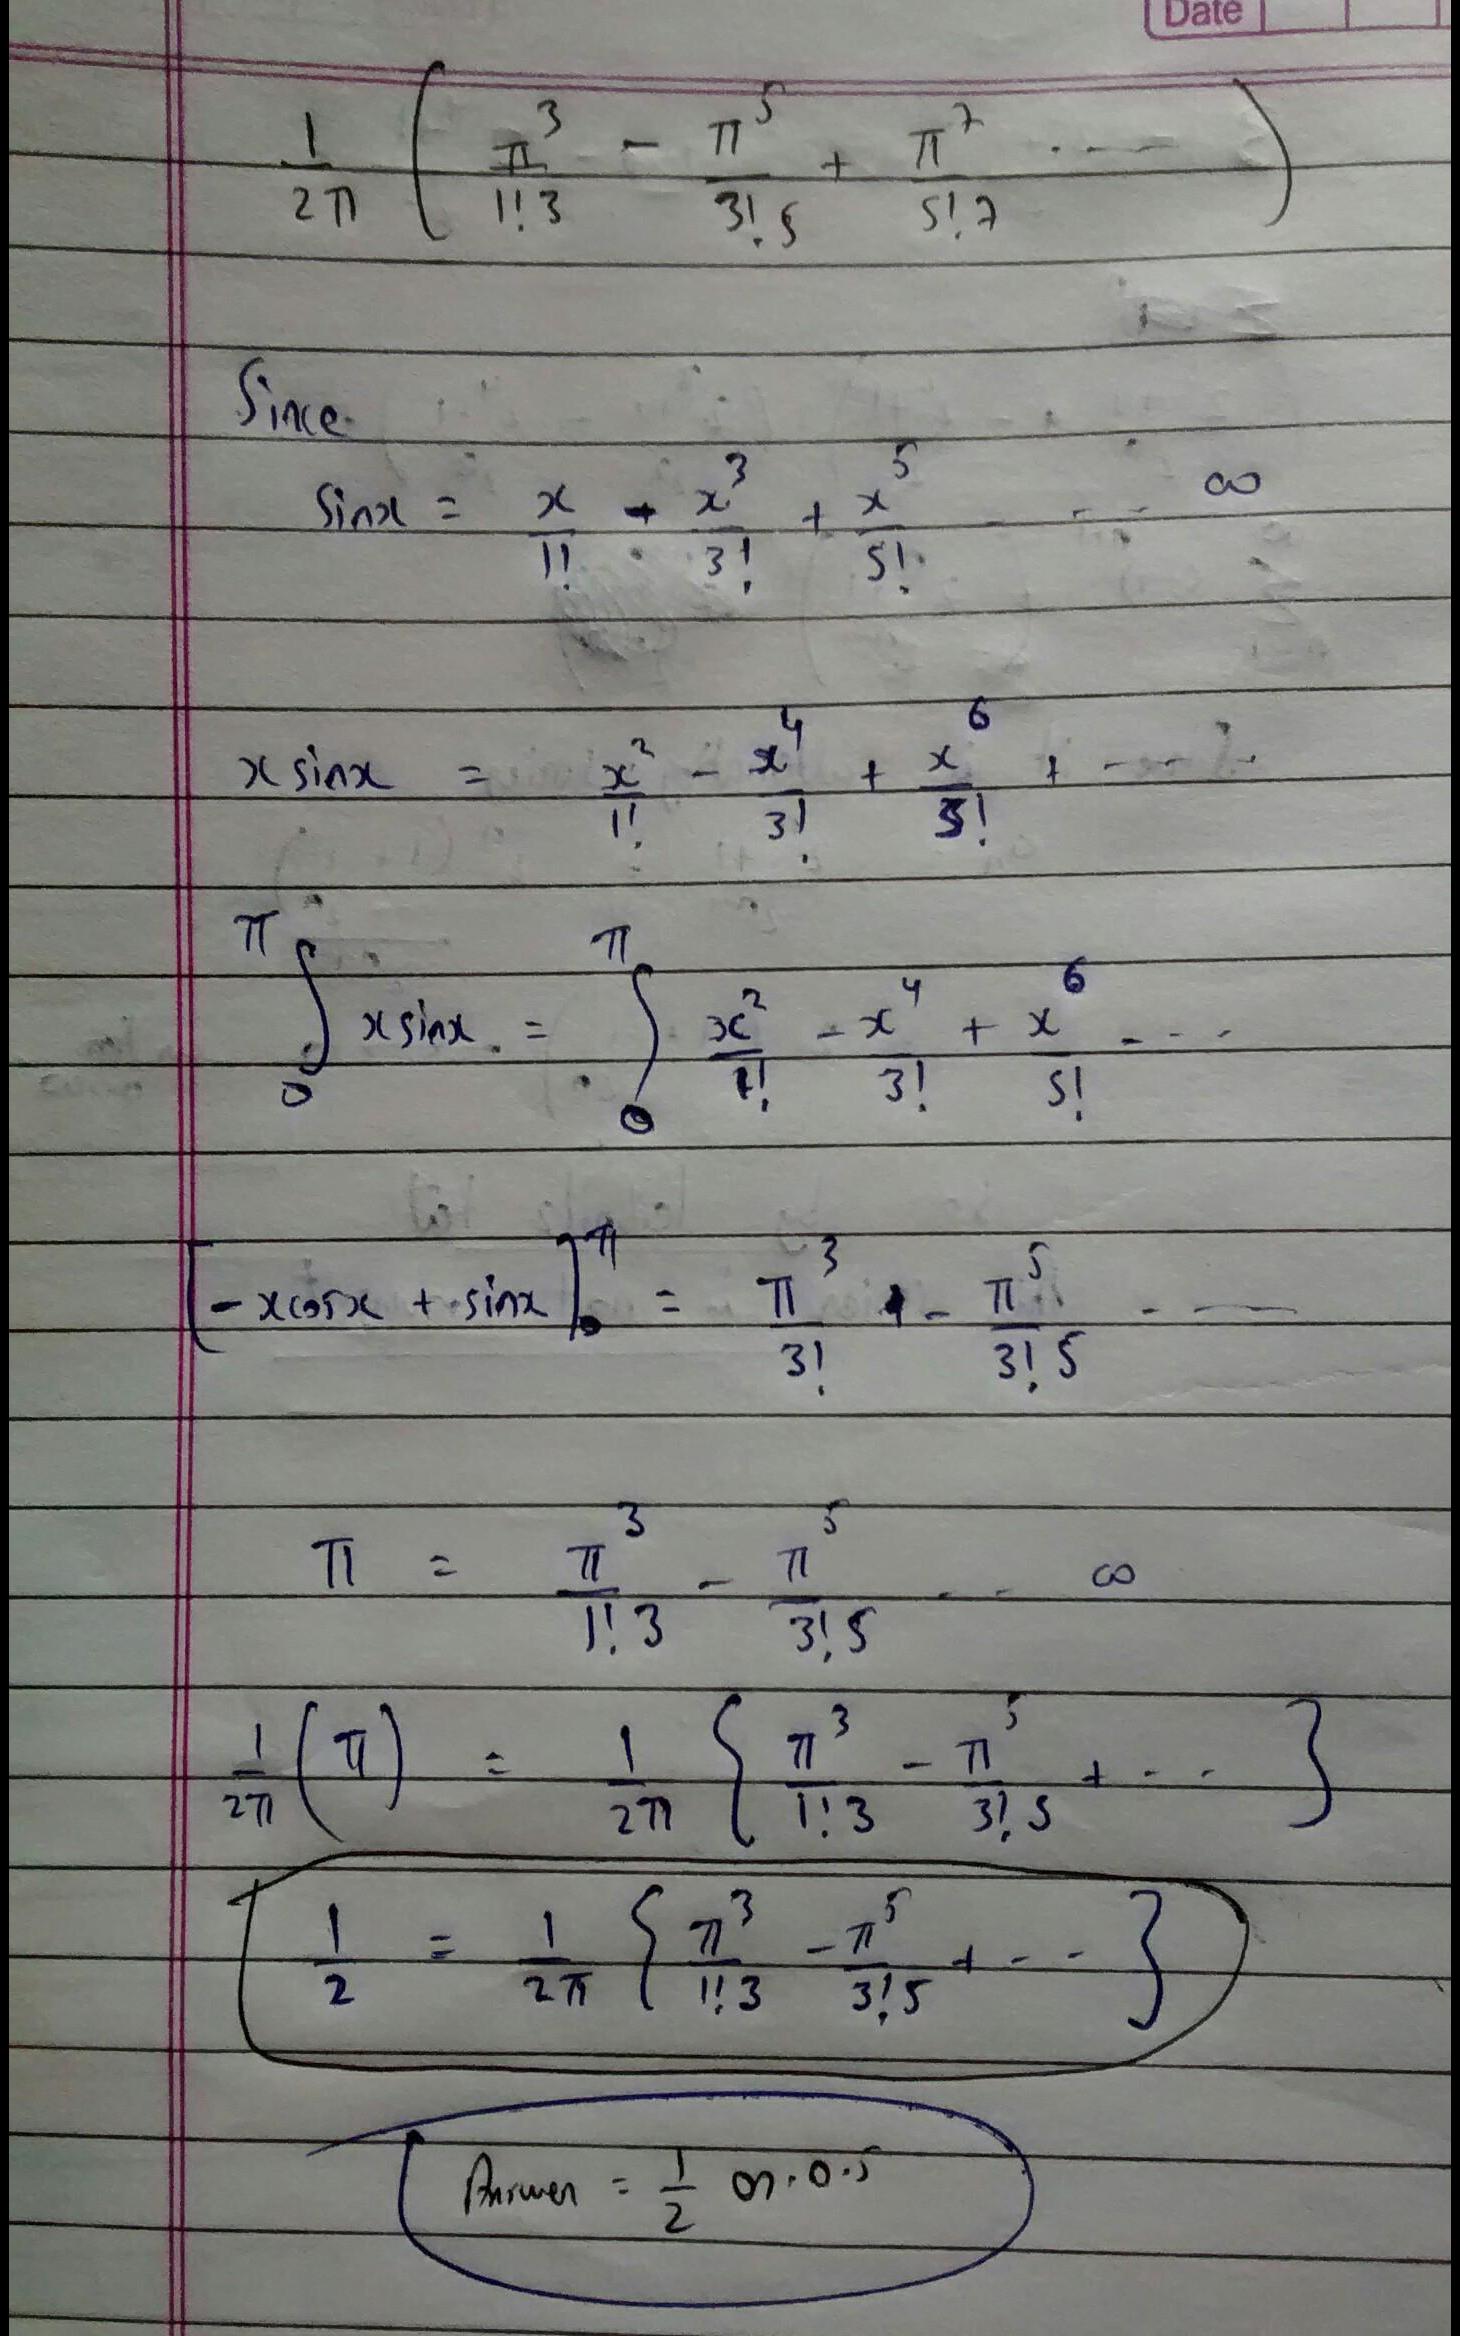 Date
1/2π ( π³/1!3 - π⁵/3!5 + π⁷/5!7 ..... )
Since
sinx = x/1! - x³/3! + x⁵/5! - - - - ∞
x sinx = x²/1! - x⁴/3! + x⁶/5! + - - - -
∫₀^π x sinx = ∫₀^π x²/1! - x⁴/3! + x⁶/5! - - - -
[-xcosx + sinx]₀^π = π³/3! - π⁵/3!5 - - -
π = π³/1!3 - π⁵/3!5 - - ∞
1/2π (π) = 1/2π { π³/1!3 - π⁵/3!5 + - - }
1/2 = 1/2π { π³/1!3 - π⁵/3!5 + - - }
Answer = 1/2 or 0.5